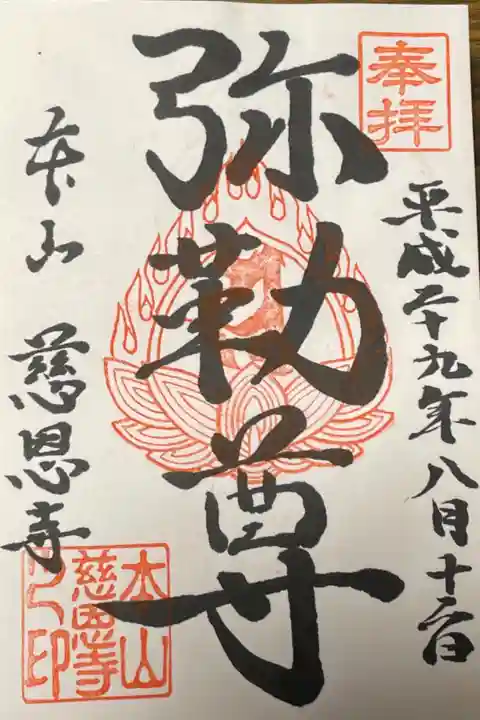 奉拝
平成二十九年八月
弥勒尊
本山 慈恩寺
本山
慈恩寺
之印